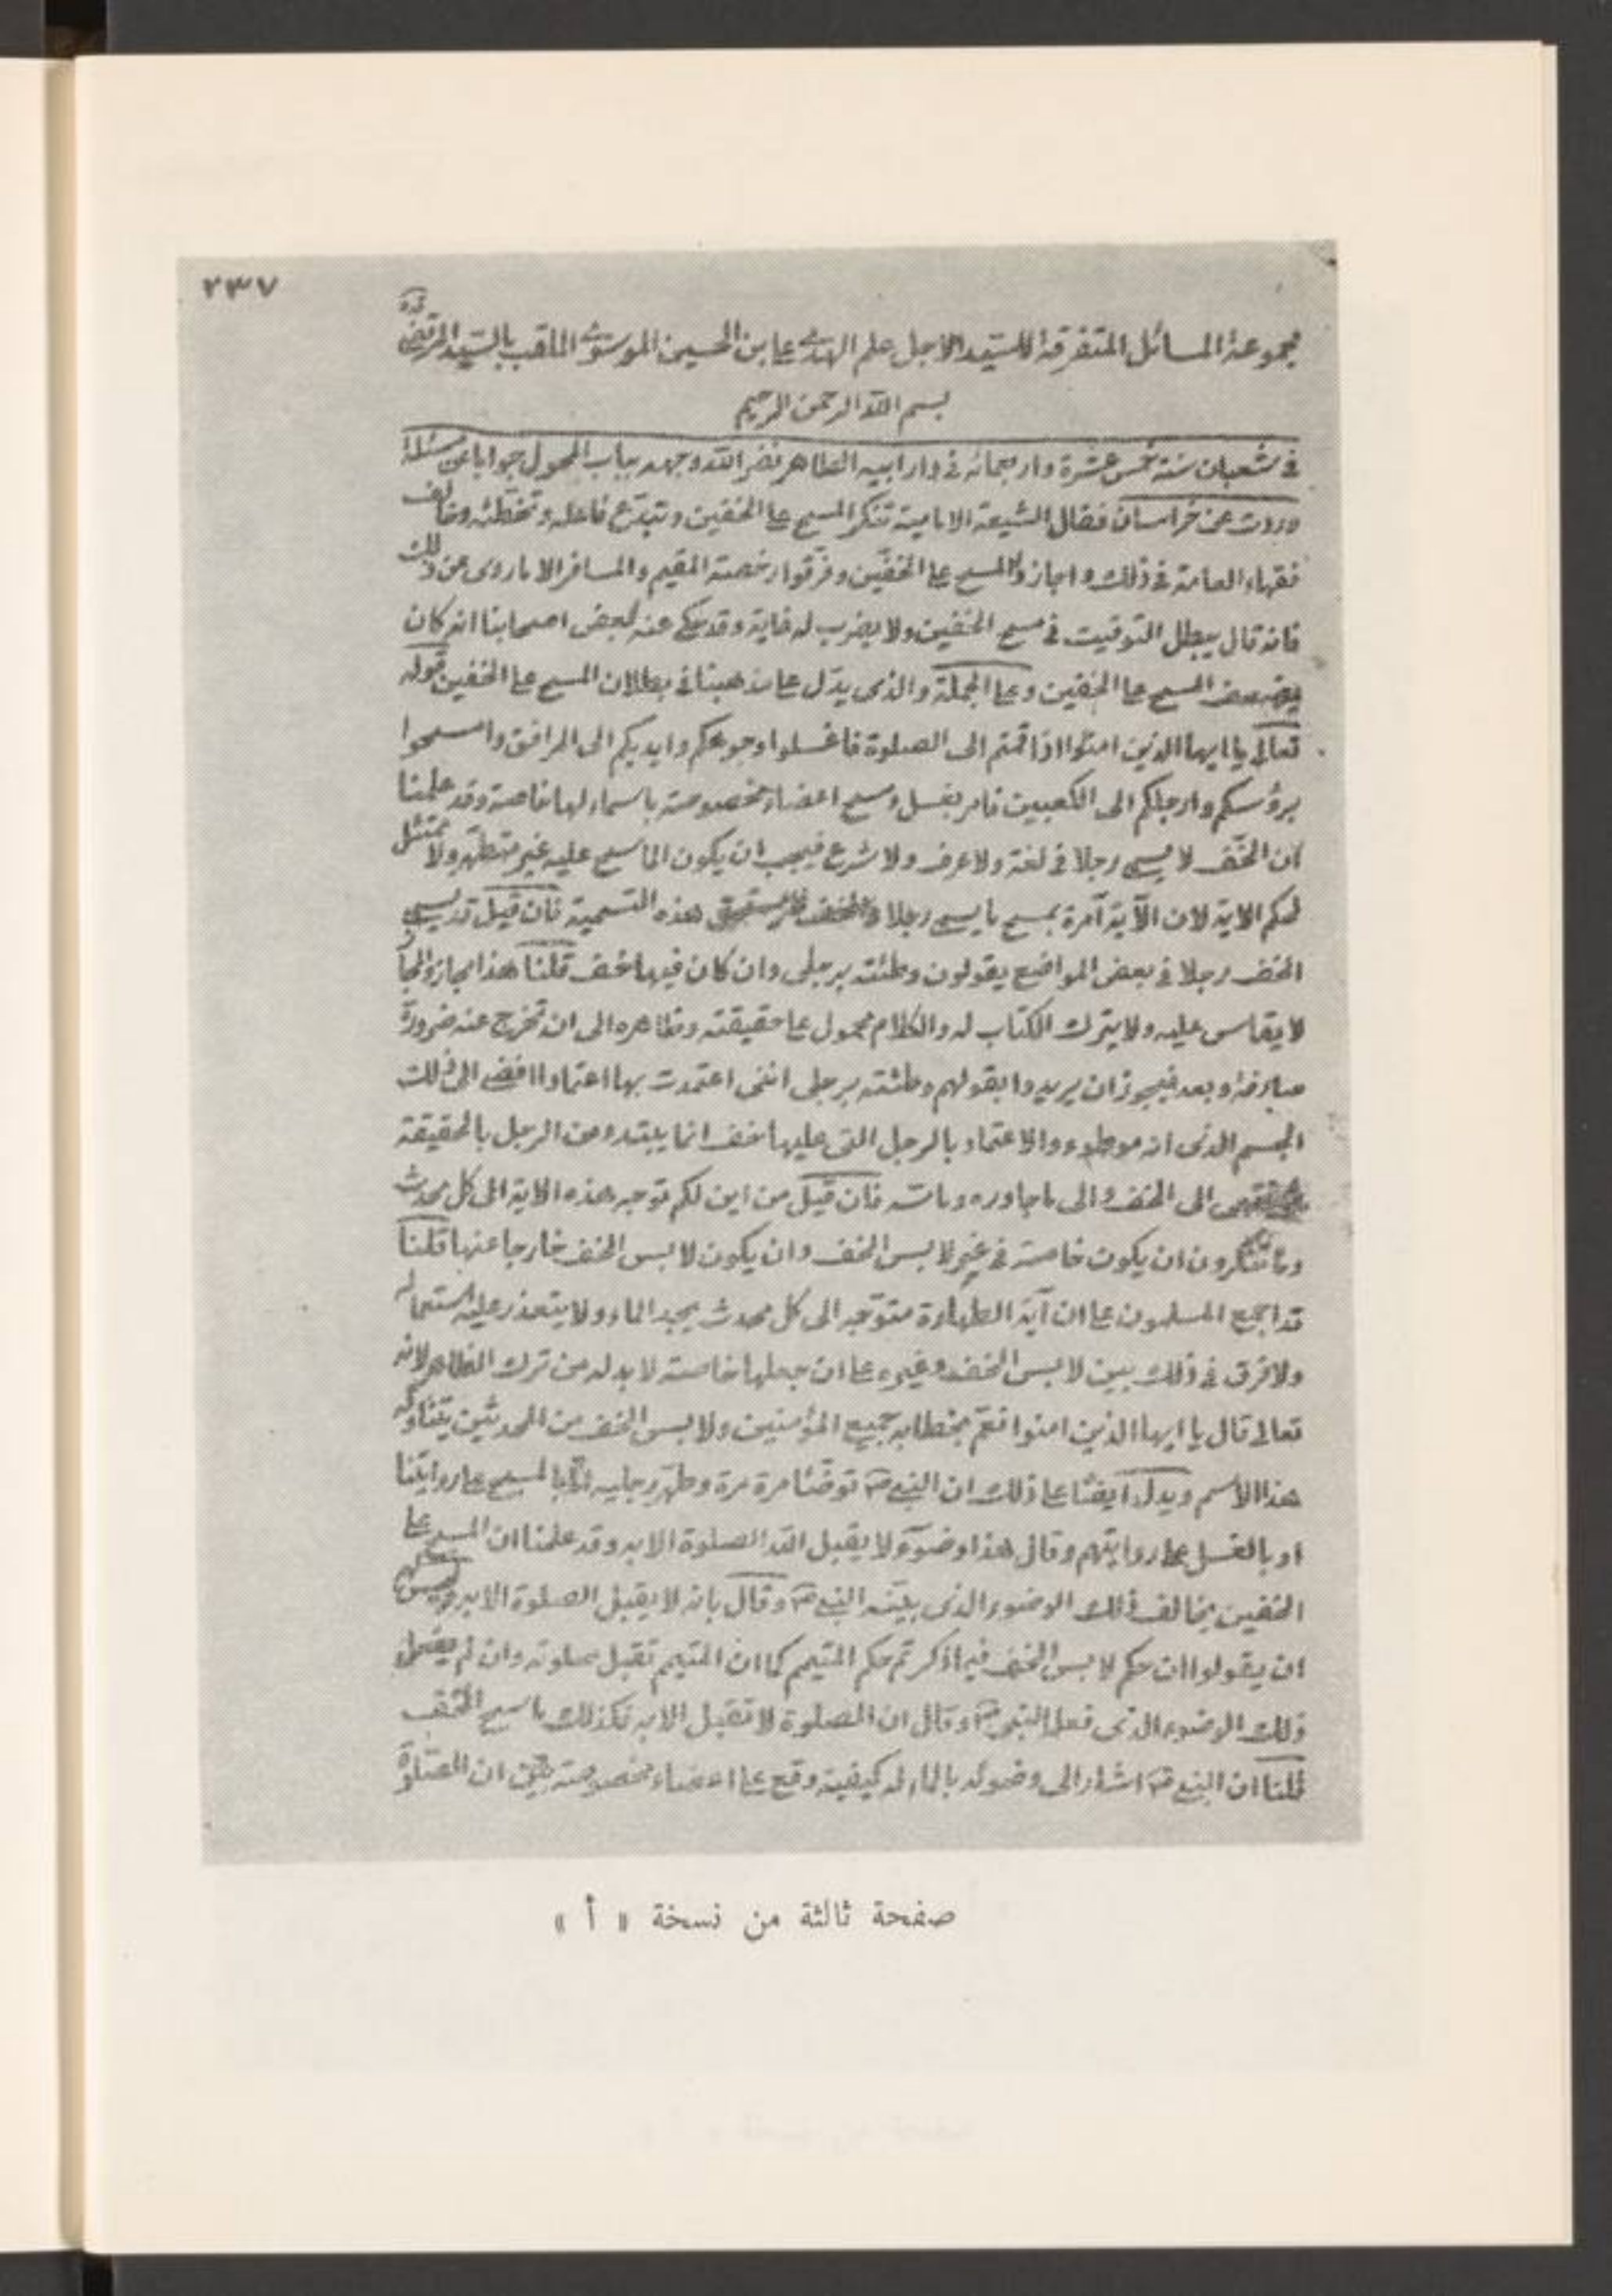 ٢٣٧
قده
مجموعة المسائل المتفرقة للسيد الاجل علم الهدى على بن الحسين الموسوى الملقب بالسيد المرتضى
بسم الله الرحمن الرحيم
فى شعبان سنة خمس عشرة واربعمائة فى دار ابيه الطاهر نضر الله وجهه بباب المحول جوابا عن مسئلة
وردت عن خراسان فقال الشيعة الامامية تنكر المسح على الخفين وتبدّع فاعله وتخطّئه وخالف
فقهاء العامة فى ذلك واجازوا المسح على الخفّين وفرّقوا رخصة المقيم والمسافر الا ما روى عن مالك
فانه قال يبطل التوقيت فى مسح الخفين ولا يضرب له غاية وقد حكى عنه بعض اصحابنا انه كان
يضعف المسح على الخفين وعلى الجملة والذى يدّل على مذهبنا فى بطلان المسح على الخفين قوله
تعالى يا ايها الذين امنوا اذا قمتم الى الصلوة فاغسلوا وجوهكم وايديكم الى المرافق وامسحوا
برؤسكم وارجلكم الى الكعبين فامر بغسل ومسح اعضاء مخصوصة باسماء لها خاصة وقد علمنا
ان الخّف لا يسمى رجلا فى لغة ولا عرف ولا شرع فيجب ان يكون الماسح عليه غير متطهّر ولا ممتثل
لحكم الاية لان الآية آمرة بمسح ما يسمى رجلا والخف لا يستحق هذه التسمية فان قيل قد يسمى
الخف رجلا فى بعض المواضع يقولون وطئته برجلى وان كان فيها خف قلنا هذا مجاز والمجاز
لا يقاس عليه ولا يترك الكتاب له والكلام محمول على حقيقته وظاهره الى ان تخرج عنه ضرورة
صارفة وبعد فيجوز ان يريدوا بقولهم وطئته برجلى اننى اعتمدت بها اعتمادا افضى الى ذلك
الجسم الذى انه موطوء والاعتماد بالرجل التى عليها خف انما يبتدء من الرجل بالحقيقة
ثم ينتهى الى الخف والى ما جاوره وماسه فان قيل من اين لكم توجه هذه الاية الى كل محدث
وما تنكرون ان يكون خاصة فى غير لابس الخف وان يكون لابس الخف خارجا عنها قلنا
قد اجمع المسلمون على ان آية الطهارة متوّجه الى كل محدث يجد الماء ولا يتعذر عليه استعماله
ولا فرق فى ذلك بين لابس الخف وغيره على ان جعلها خاصة لا بد له من ترك الظاهر لانه
تعالى قال يا ايها الذين امنوا فعّم بخطابه جميع المؤمنين ولابس الخف من المحدثين يتناوله
هذا الاسم ويدل ايضا على ذلك ان النبى ص توضّئا مرة مرة وطهّر رجليه اما بالمسح على روايتنا
او بالغسل على روايتهم وقال هذا وضوء لا يقبل الله الصلوة الا به وقد علمنا ان المسح على
الخفين يخالف ذلك الوضوء الذى بيّنه النبى ص وقال بانه لا يقبل الصلوة الا به وليس لهم
ان يقولوا ان حكم لابس الخف فيما ذكرتم حكم المتيمم كما ان المتيمم تقبل صلوته وان لم يفعل
ذلك الوضوء الذى فعل النبى ص وقال ان الصلوة لا تقبل الا به فكذلك ماسح الخّف
قلنا ان النبى ص اشار الى وضوئه بالماء له كيفية وقع على اعضاء مخصوصة بيّن ان الصلوة
صفحة ثالثة من نسخة « أ »